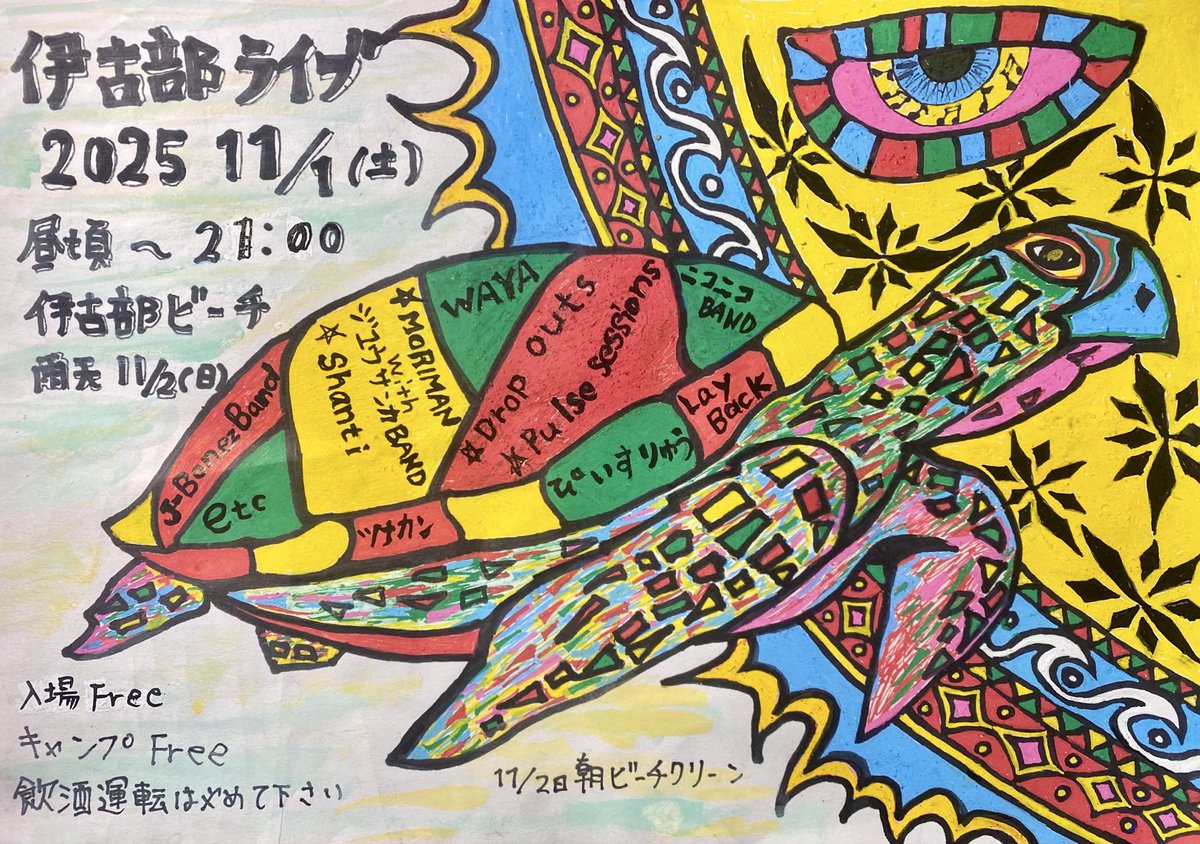 伊古部ライブ
2025 11/1(土)
昼頃〜21:00
伊古部ビーチ
雨天11/2(日)
J-Bonez Band
etc
☆MORIMAN
with
ジュウザーガBAND
☆Shanti
WAYA
☆Drop outs
☆Pulse sessions
ニコニコ
BAND
Lay
Back
ぴいすりゅう
ツナカン
入場Free
キャンプFree
飲酒運転はやめて下さい
11/2日朝ビーチクリーン